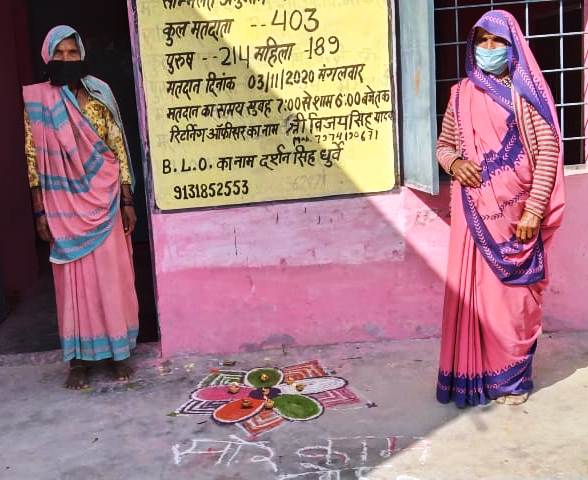 कुल मतदाता -- 403
पुरुष -- 214 महिला -189
मतदान दिनांक 03/11/2020 मंगलवार
मतदान का समय सुबह 7:00 से शाम 6:00 बजे तक
रिटर्निंग ऑफीसर का नाम श्री विजय सिंह यादव
B.L.O. का नाम दर्शन सिंह धुर्वे
9131852553